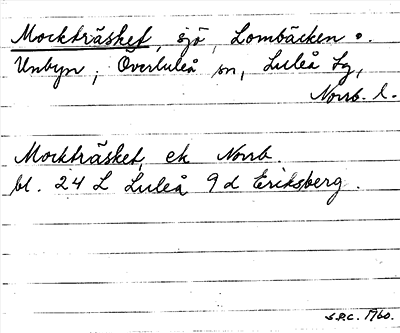 Mockträsket, sjö, Lombäcken o.
Unbyn, Överluleå sn, Luleå tg,
Norrb. l.
Mockträsket, ek Norrb.
bl. 24 L Luleå 9d Eriksberg.
S.P.C. 1960.